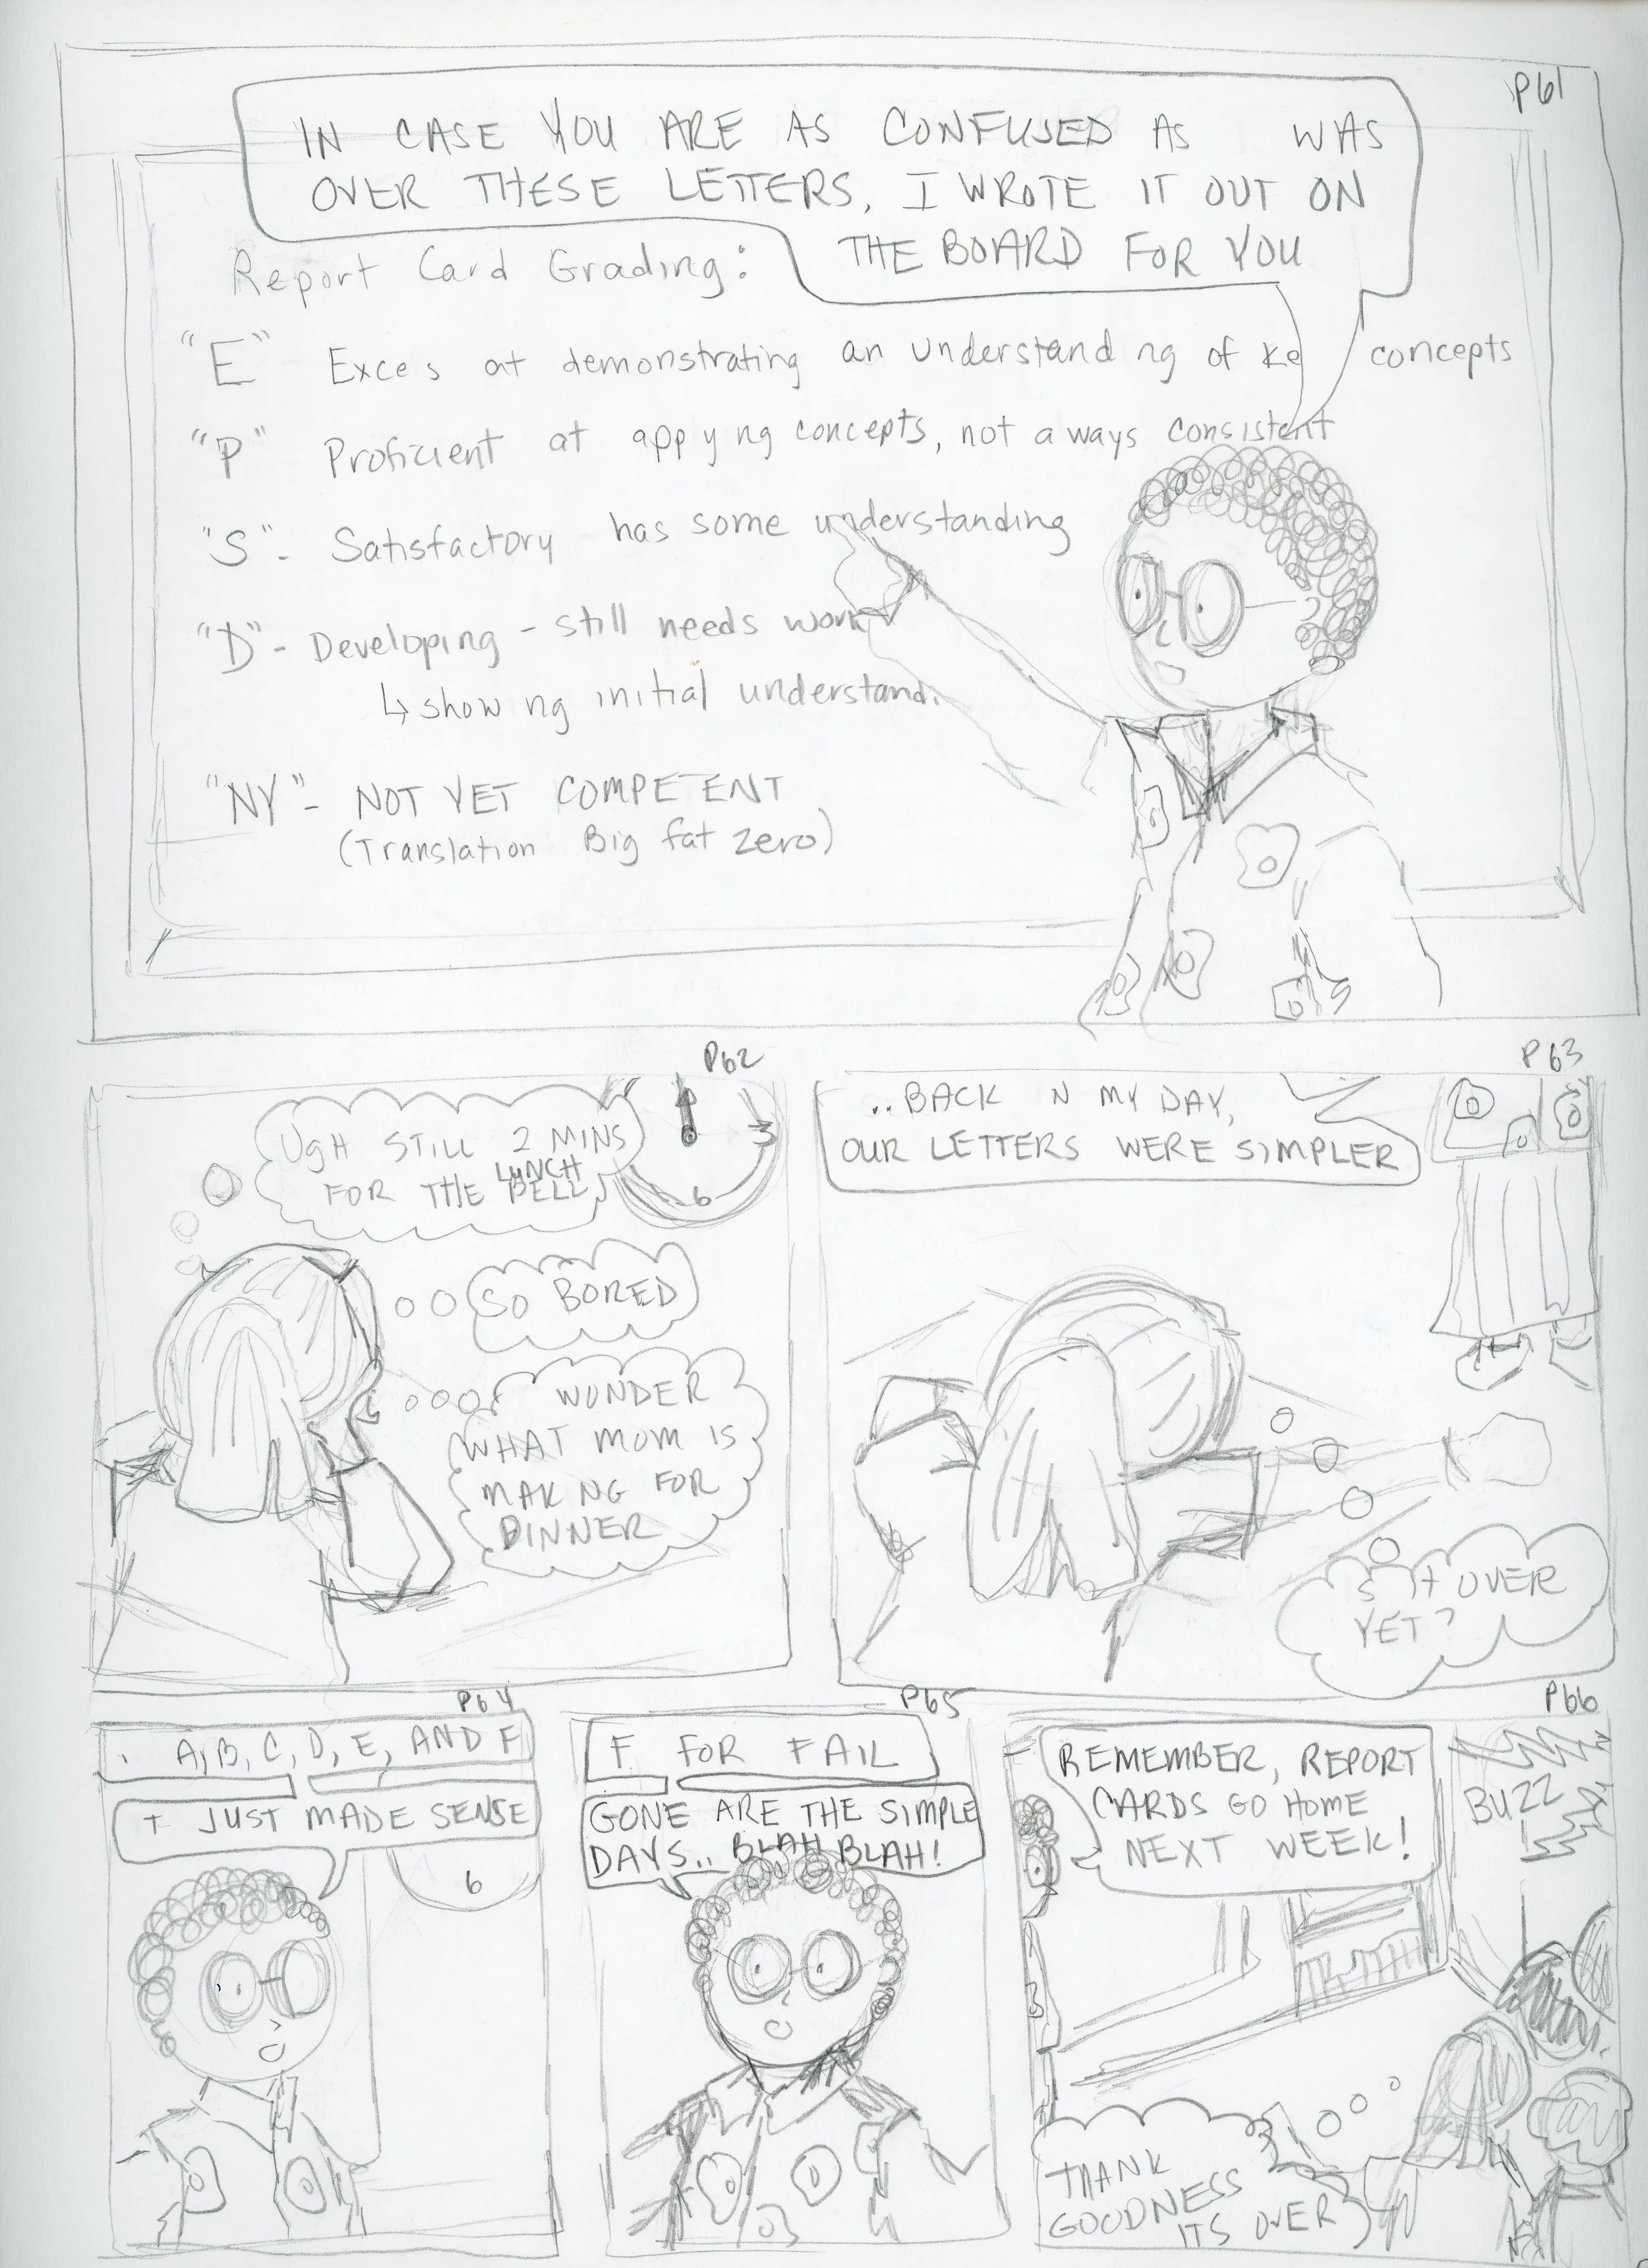 P61
IN CASE YOU ARE AS CONFUSED AS WAS
OVER THESE LETTERS, I WROTE IT OUT ON
THE BOARD FOR YOU
Report Card Grading:
"E" Exce s at demonstrating an understand ng of ke concepts
"P" Proficient at app y ng concepts, not a ways consistent
"S" - Satisfactory has some understanding
"D" - Developing - still needs work
↳ show ng initial understand.
"NY" - NOT YET COMPETENT
(Translation Big fat zero)
P62
UgH STILL 2 MINS
FOR THE LUNCH BELL
3
6
SO BORED
WONDER
WHAT MOM IS
MAK NG FOR
DINNER
P63
..BACK N MY DAY,
OUR LETTERS WERE SIMPLER
S IT OVER
YET?
P64
. A, B, C, D, E, AND F
IT JUST MADE SENSE
6
P65
F FOR FAIL
GONE ARE THE SIMPLE
DAYS.. BLAH BLAH!
P66
REMEMBER, REPORT
CARDS GO HOME
NEXT WEEK!
BUZZ
!
THANK
GOODNESS
ITS OVER